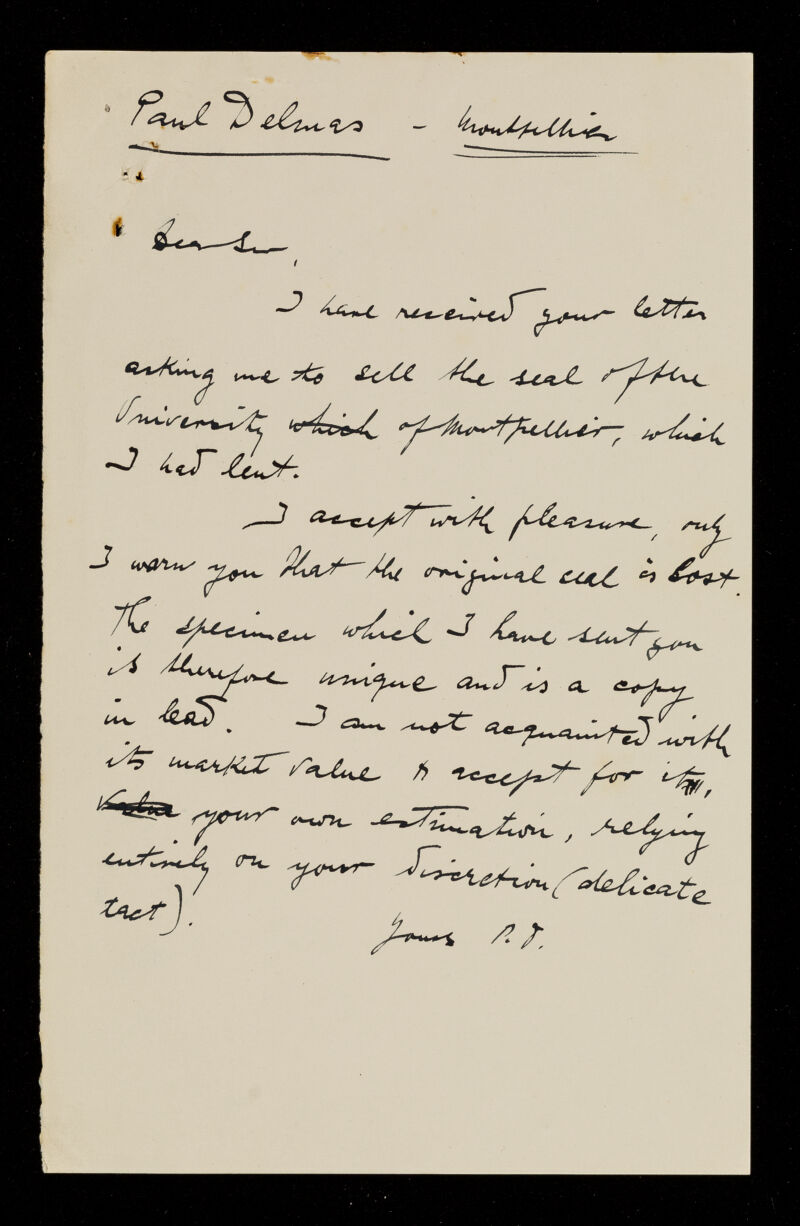 Paul Delmas - Montpellier
Dear Sir,
I have received your letter
asking me to sell the seal of the
University which of Montpellier, which
I had lent.
I accept with pleasure, only
I warn you that the original seal is lost.
The specimen which I have sent you
is therefore unique and is a copy
in lead. I am not acquainted with
its market value & accept for it,
value your own estimation, relying
entirely on your discretion (delicate
tact).
Yours P.D.